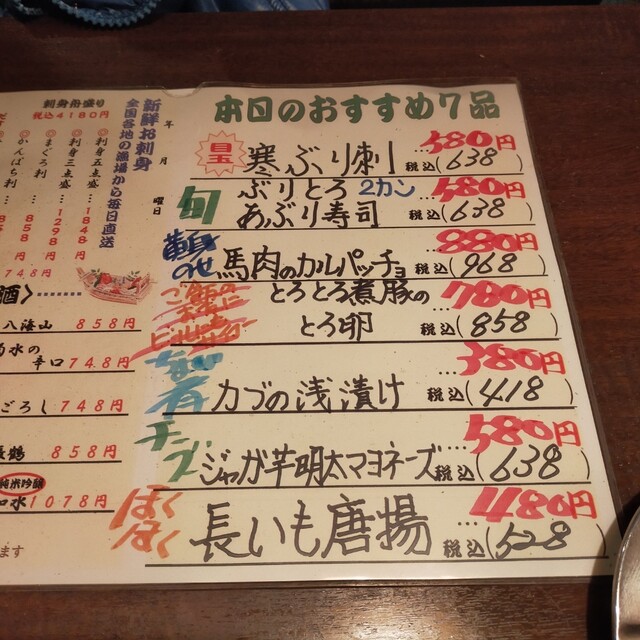 本日のおすすめ7品
目玉
寒ぶり刺
…580円
税込(638)
旬
ぶりとろ 2カン
あぶり寿司
…580円
税込(638)
黄身
のせ
馬肉のカルパッチョ
…880円
税込(968)
ご飯の
上に
とろとろ煮豚の
とろ卵
…780円
税込(858)
カブの浅漬け
…380円
税込(418)
チーズ
ジャガ芋明太マヨネーズ
…580円
税込(638)
ほく
ほく
長いも唐揚
…480円
税込(528)
新鮮お刺身
全国各地の漁場から毎日直送
年 月 曜日
刺身舟盛り
税込4180円
◎刺身五点盛…1848円
◎刺身三点盛…1298円
◎まぐろ刺…858円
◎かんぱち刺…858円
748円
酒〉
八海山 858円
水の
辛口 748円
ごろし 748円
鶴 858円
純米吟醸
水 1078円
ます